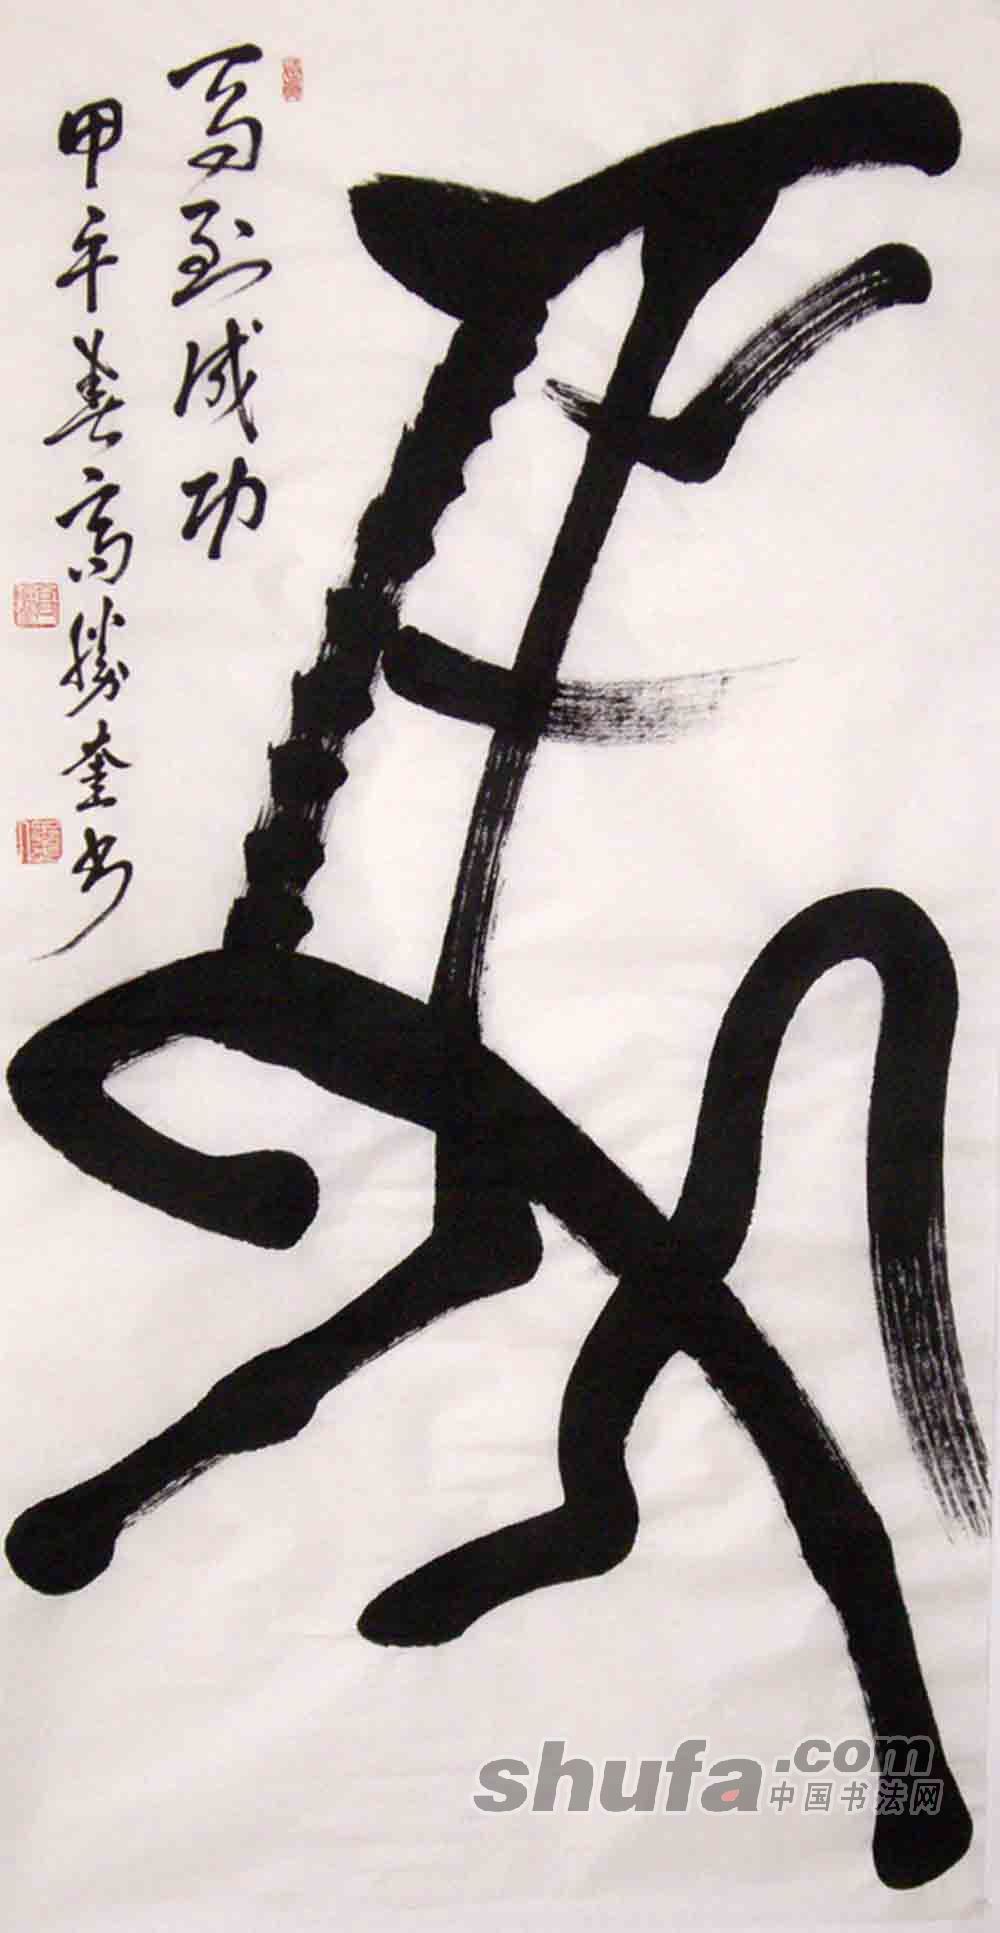 馬
馬到成功
甲午春高勝奎书
shufa.com
中国书法网